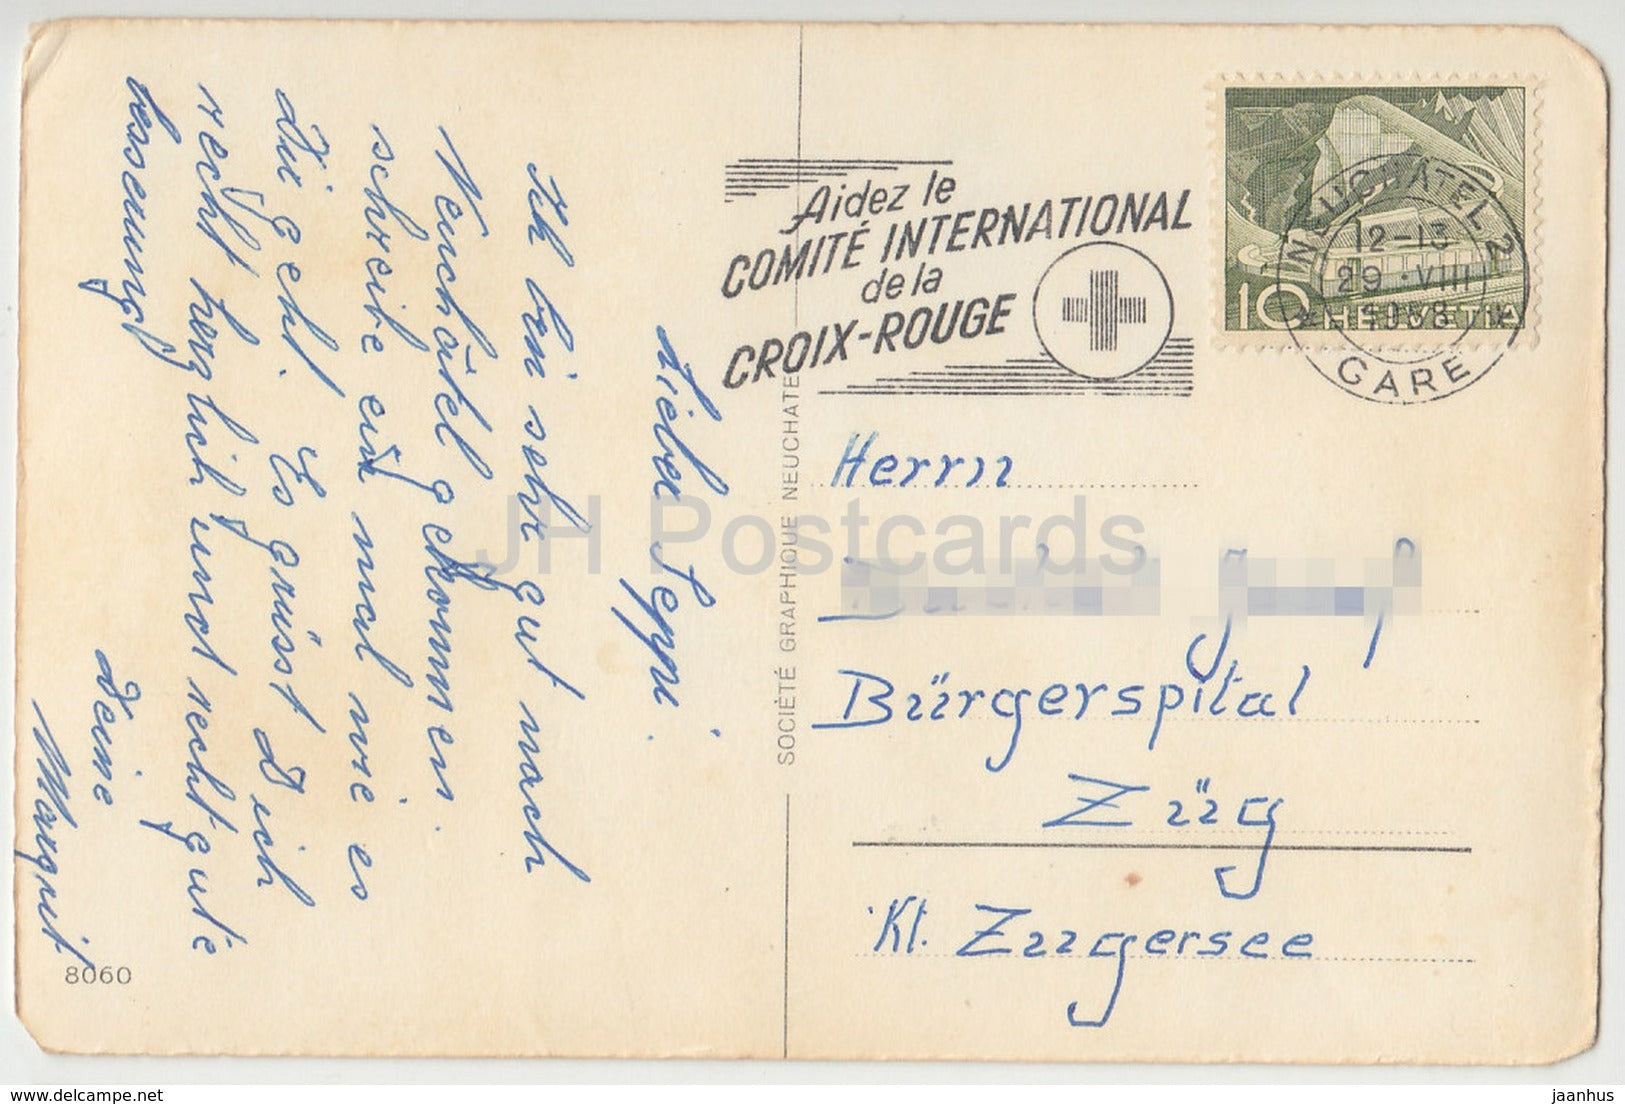 Lieber Seppi.
Ich bin sehr gut nach
Neuchâtel gekommen.
schreibe ein mal wie es
Dir geht. Es grüsst Dich
recht herzlich und recht gute
besserung
Deine
Margrit
8060
SOCIÉTÉ GRAPHIQUE NEUCHATEL
Aidez le
COMITÉ INTERNATIONAL
de la
CROIX-ROUGE
NEUCHATEL 2
12-13
29.VIII
1958
GARE
10 HELVETIA
Herrn
Bürgerspital
Züg
Kt. Zugersee
JH Postcards
www.delcampe.net
jaanhus